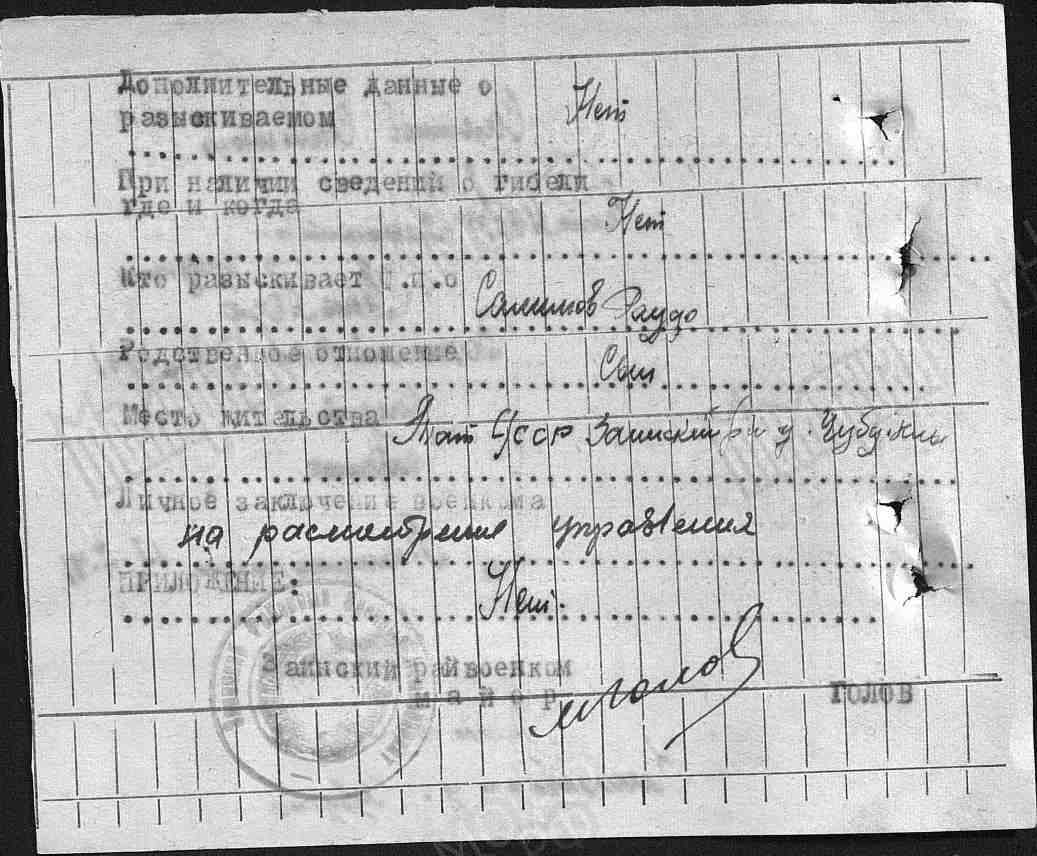 Дополнительные данные о
разыскиваемом Нет
При наличии сведений о гибели
где и когда Нет
Кто разыскивает Ф.и.о
Салимов Раудо
Родственное отношение
Сын
Место жительства Тат АССР Заинский р-н д.
Личное заключение военкома
на расмотрения управления
ПРИЛОЖЕНИЕ: Нет.
Заинский райвоенком
майор Голов ГОЛОВ